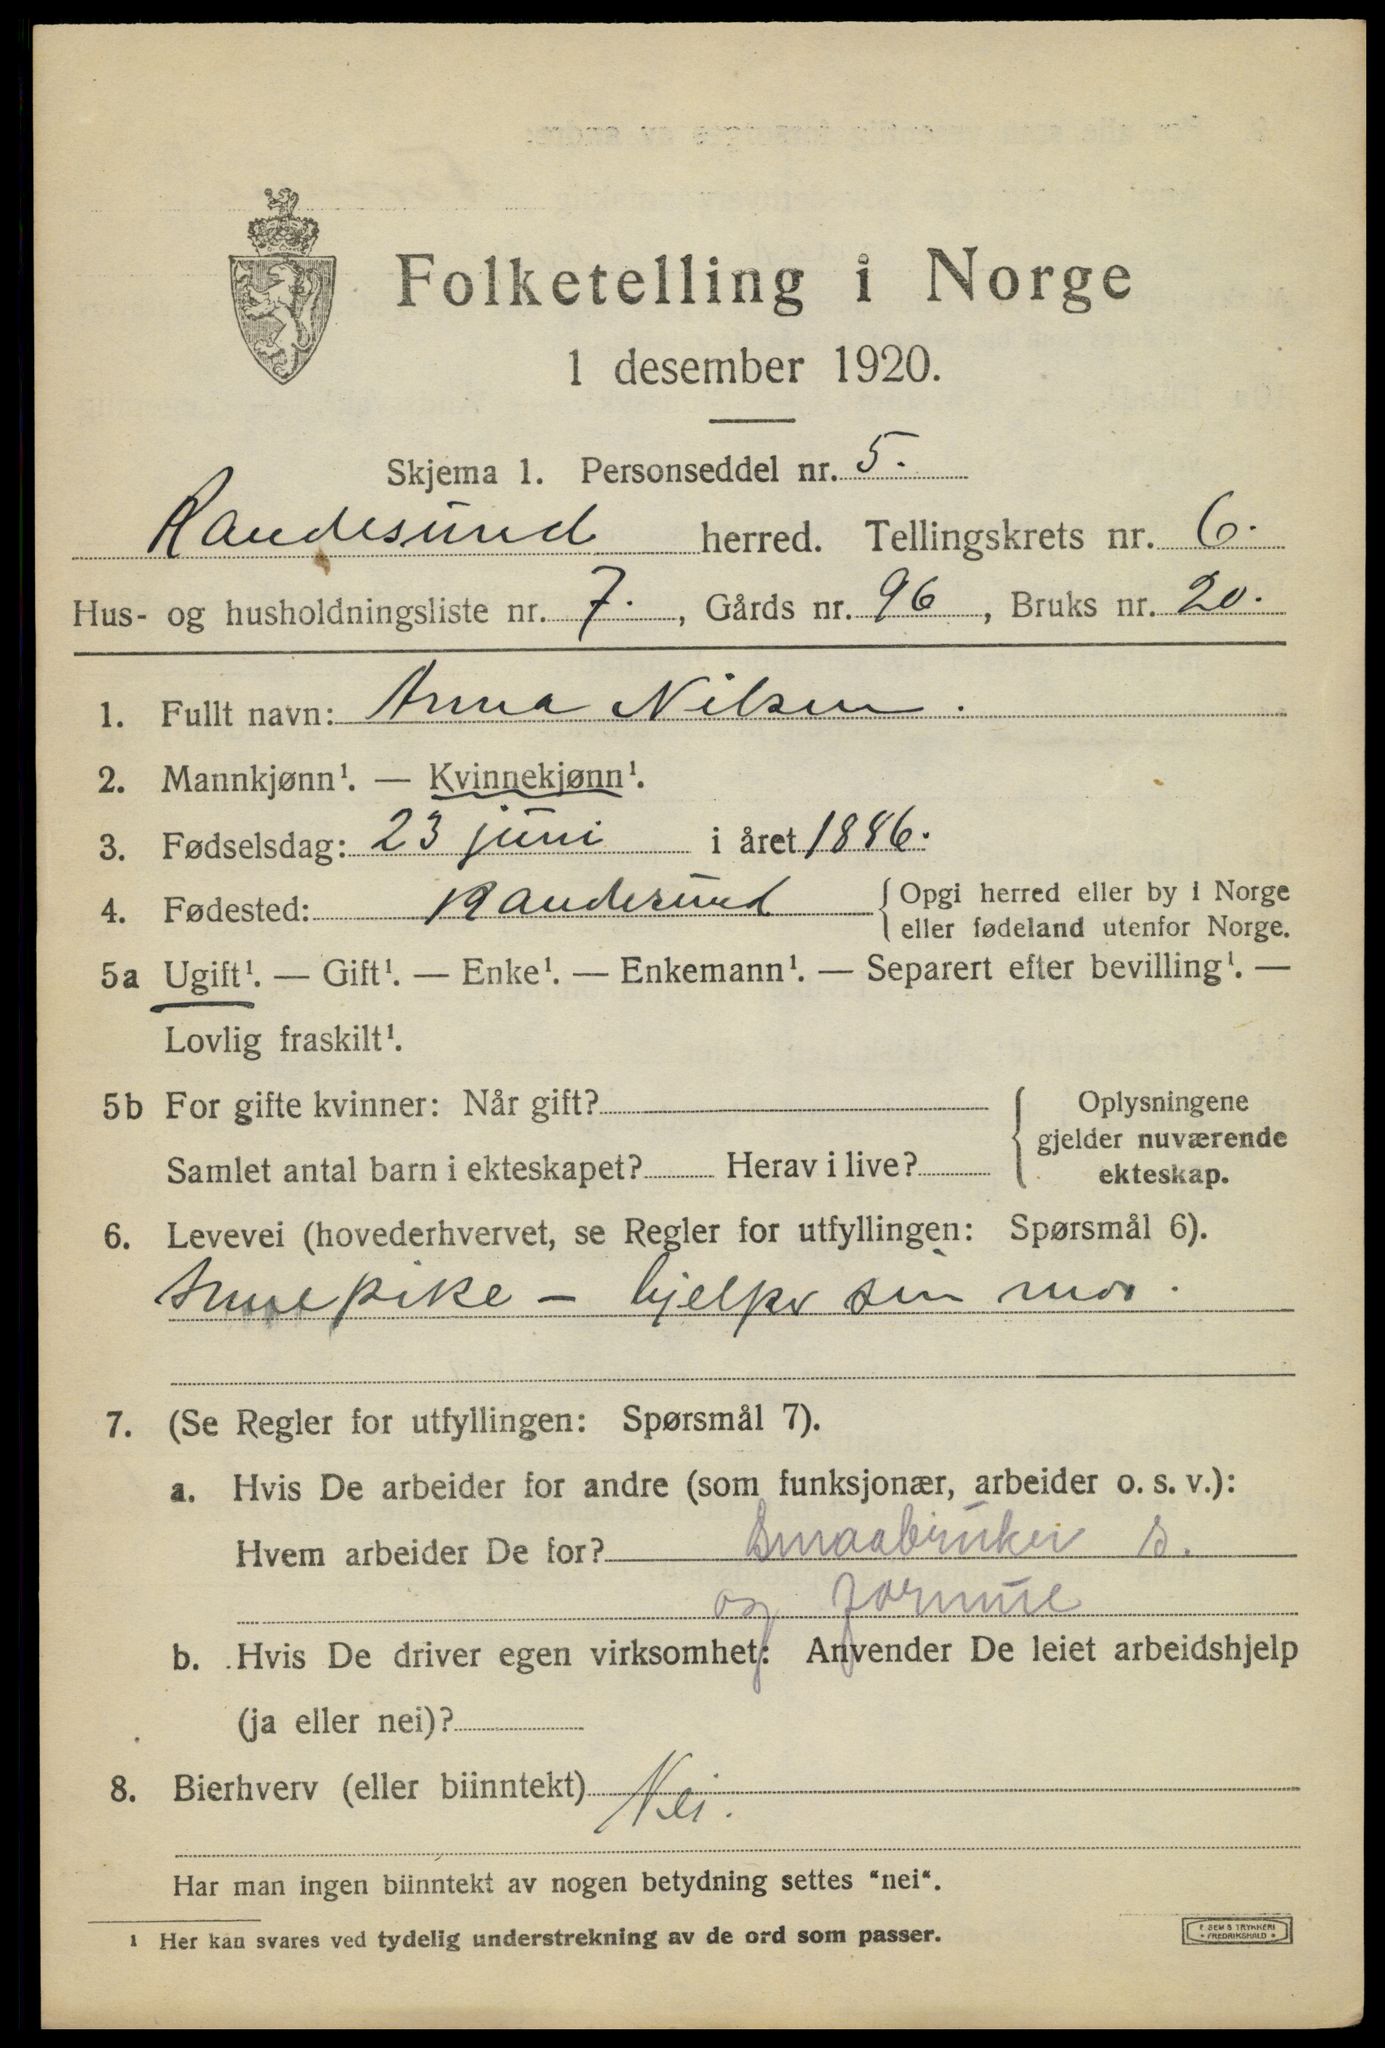 Folketelling i Norge
1 desember 1920.
Skjema 1. Personseddel nr. 5.
Randesund herred. Tellingskrets nr. 6.
Hus- og husholdningsliste nr. 7., Gårds nr. 96, Bruks nr. 20.
1. Fullt navn: Anna Nilsen.
2. Mannkjønn¹. — Kvinnekjønn¹.
3. Fødselsdag: 23 juni i året 1886.
4. Fødested: Randesund { Opgi herred eller by i Norge
eller fødeland utenfor Norge.
5a Ugift¹. — Gift¹. — Enke¹. — Enkemann¹. — Separert efter bevilling¹. —
Lovlig fraskilt¹.
5b For gifte kvinner: Når gift?
Samlet antal barn i ekteskapet? Herav i live?
{ Oplysningene
gjelder nuværende
ekteskap.
6. Levevei (hovederhvervet, se Regler for utfyllingen: Spørsmål 6).
pike – hjelper sin mor.
7. (Se Regler for utfyllingen: Spørsmål 7).
a. Hvis De arbeider for andre (som funksjonær, arbeider o. s. v.):
Hvem arbeider De for? Smaabruker s.
og formue
b. Hvis De driver egen virksomhet: Anvender De leiet arbeidshjelp
(ja eller nei)?
8. Bierhverv (eller biinntekt) Nei.
Har man ingen biinntekt av nogen betydning settes "nei".
¹ Her kan svares ved tydelig understrekning av de ord som passer.
F. SEM'S TRYKKERI
FREDRIKSHALD